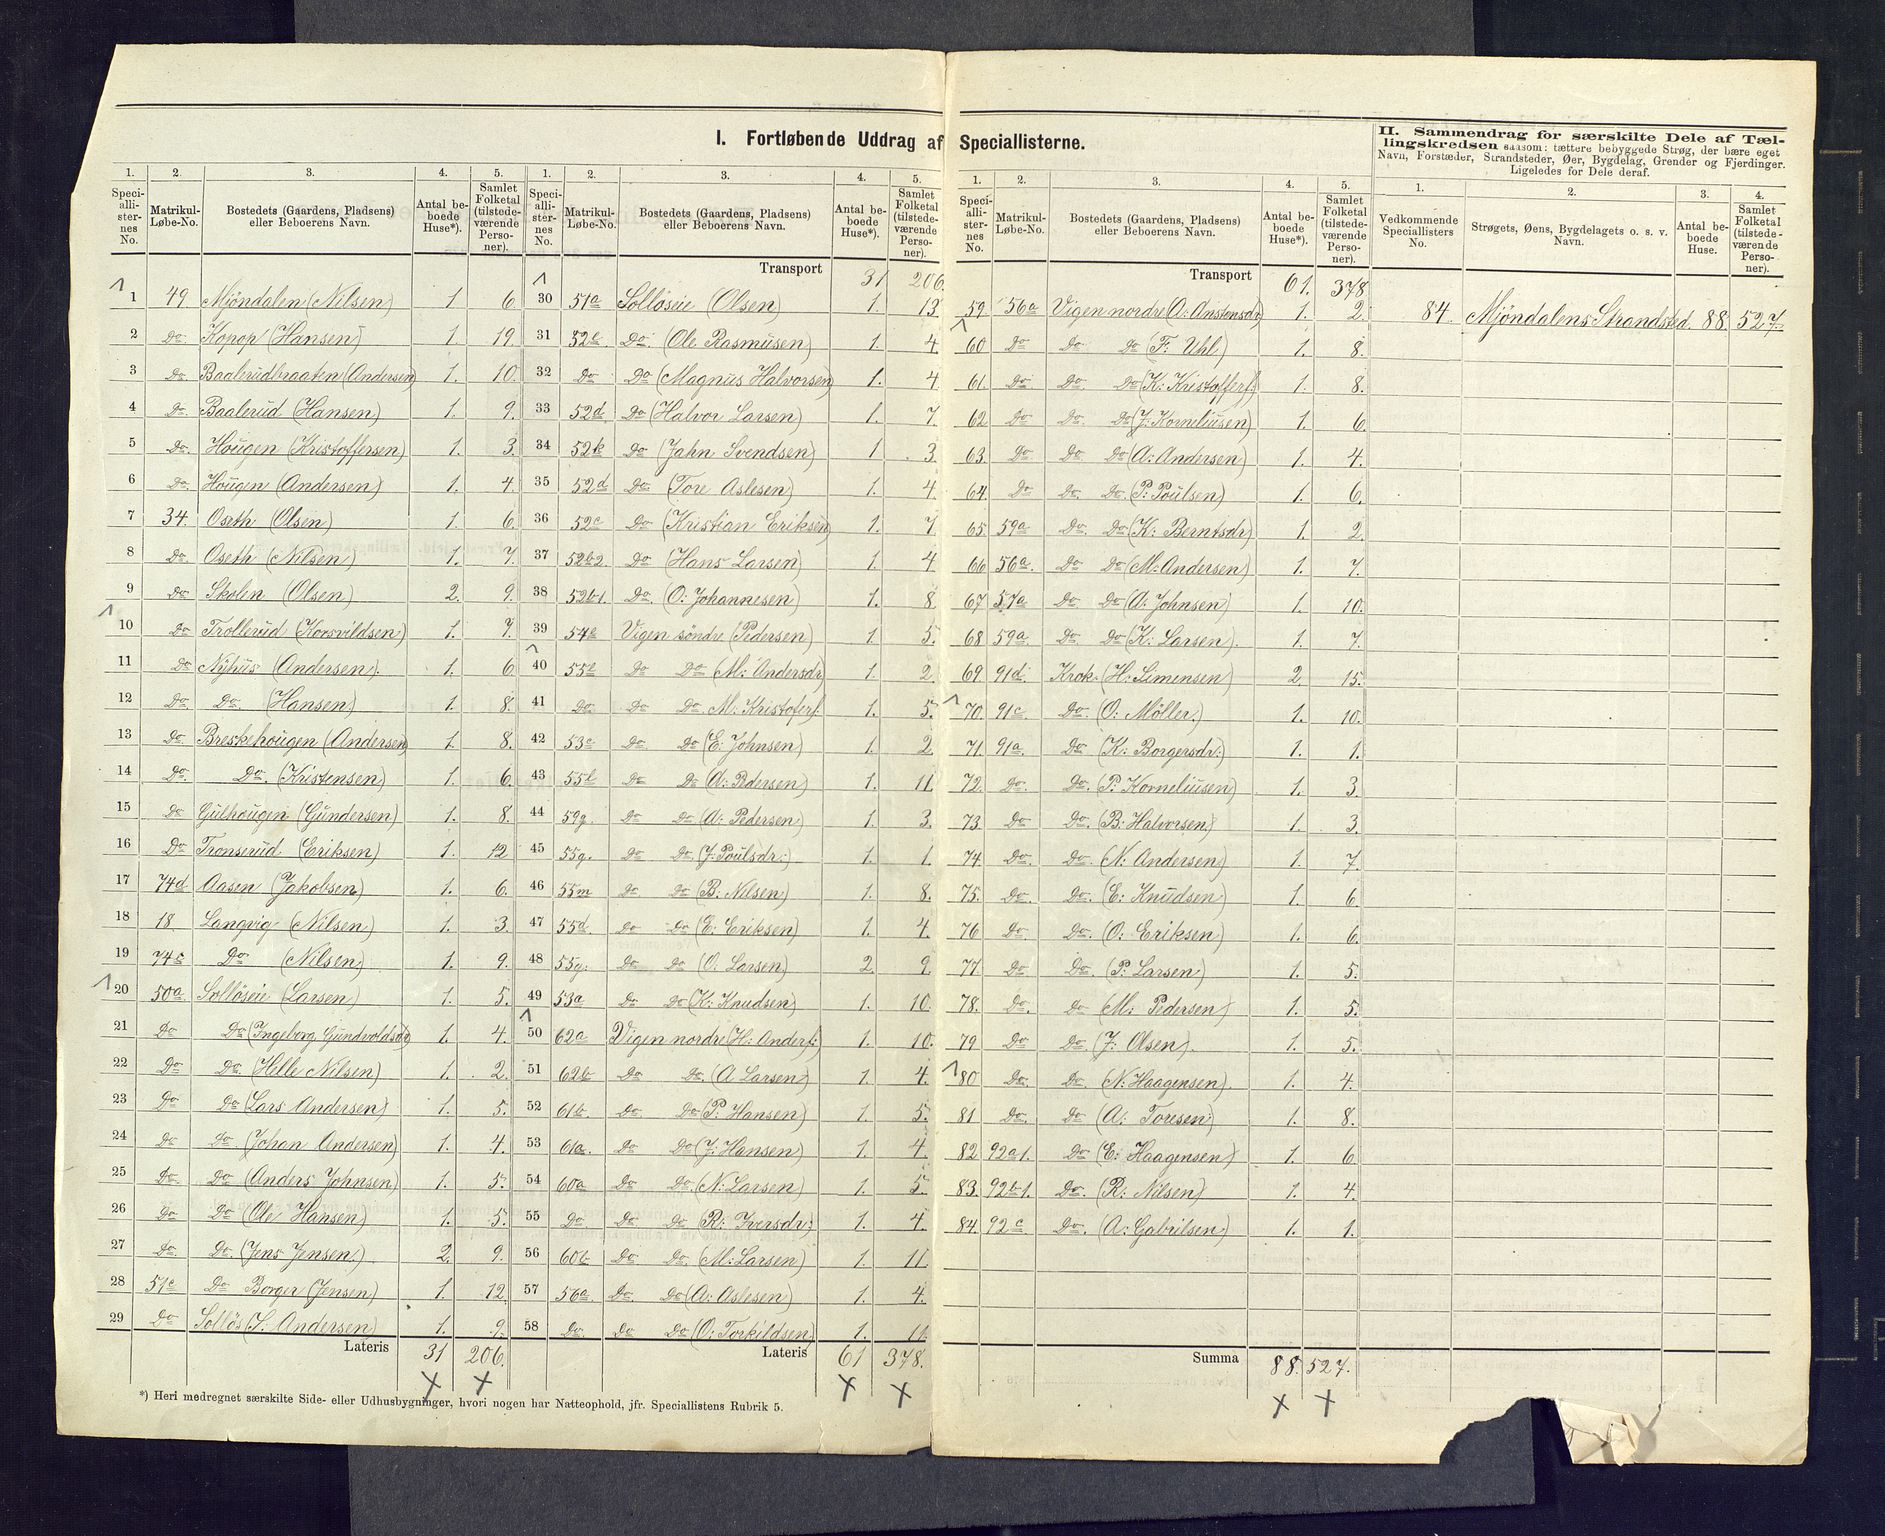 I. Fortløbende Uddrag af Speciallisterne.
1. 2. 3. 4. 5.
Speciallisternes No. Matrikul-Løbe-No. Bostedets (Gaardens, Pladsens) eller Beboerens Navn. Antal beboede Huse*). Samlet Folketal (tilstedeværende Personer).
1 49 Mjöndalen (Nilsen) 1 6.
2 Do Kopop (Hansen) 1. 19.
3 Do Baalerudbraaten (Andersen) 1. 10.
4 Do Baalerud (Hansen) 1. 9.
5 Do Hougen (Kristoffersen) 1. 3.
6 Do Hougen (Andersen) 1. 4.
7 34. Oseth (Olsen) 1. 6.
8 Do Oseth (Nilsen) 1. 7.
9 Do Skolen (Olsen) 2. 9.
10 Do Trollerud (Korsvildsen) 1. 7.
11 Do Nyhus (Andersen). 1. 6
12 Do Do (Hansen) 1. 8.
13 Do Breskehougen (Andersen) 1. 8.
14 Do Do. (Kristensen) 1. 6.
15 Do Gulhougen (Gundersen) 1. 8.
16 Do Tronserud (Eriksen) 1. 12
17 74d Aasen (Jakobsen) 1. 6.
18 18 Langvig (Nilsen) 1. 3.
19 74c Do (Nilsen) 1. 9.
20 50a Sollöseie (Larsen) 1. 5.
21 Do Do (Ingeborg Gundvoldsdr) 1. 4.
22 Do Do. (Helle Nilsen) 1. 2.
23 Do Do (Lars Andersen) 1. 5.
24 Do Do. (Johan Andersen) 1. 4.
25 Do Do (Anders Johnsen) 1. 5.
26 Do Do (Ole Hansen) 1. 5.
27 Do Do. (Jens Jensen) 2. 9.
28 51c Do Borger (Jensen) 1. 12
29 Do Sollös (S: Andersen) 1. 9.
Lateris 31 206.
*) Heri medregnet særskilte Side- eller Udhusbygninger, hvori nogen har Natteophold, jfr. Speciallistens Rubrik 5.
1. 2. 3. 4. 5.
Speciallisternes No. Matrikul-Løbe-No. Bostedets (Gaardens, Pladsens) eller Beboerens Navn. Antal beboede Huse*). Samlet Folketal (tilstedeværende Personer).
Transport 31 206.
30 51a Sollöseie (Olsen) 1. 13.
31 52e Do. (Ole Rasmusen) 1. 4.
32 Do Do (Magnus Halvorsen) 1. 4
33 52d. Do (Halvor Larsen) 1. 7.
34 52k Do (Jahn Svendsen) 1 3.
35 52d Do. (Tore Aslesen) 1. 4
36 52c Do (Kristian Eriksen) 1. 7
37 52b2 Do (Hans Larsen) 1. 4.
38 52b1. Do. (O: Johannesen) 1. 8.
39 54e Vigen söndre (Pedersen) 1 5.
40 55k Do Do (M: Andersdr) 1. 2.
41 Do Do Do M: Kristofers. 1. 5.
42 53c Do Do (E: Johnsen) 1. 2
43 55l Do Do (A: Pedersen) 1. 11.
44 59g. Do Do (A: Pedersen) 1. 3.
45 55g. Do Do (J: Poulsdr:) 1. 1.
46 55m Do Do (B: Nilsen) 1. 8.
47 55d. Do Do (E: Eriksen) 1. 4.
48 55g. Do Do (O: Larsen) 2. 9.
49 53a Do Do (K: Knudsen) 1. 10.
50 62a Vigen nordre (H: Anders:) 1. 10.
51 62b Do Do. (A Larsen) 1. 4.
52 61b. Do Do (P: Hansen) 1. 5.
53 61a. Do Do (J: Hansen) 1 4.
54 60a Do Do. (N: Larsen) 1. 5.
55 Do. Do Do (R: Iversdr:) 1. 4.
56 60b Do Do (M: Larsen) 1. 11.
57 56a Do. Do (A: Aslesen) 1. 4.
58 Do. Do Do (O: Torkildsen) 1. 11.
Lateris 61 378.
1. 2. 3. 4. 5.
Speciallisternes No. Matrikul-Løbe-No. Bostedets (Gaardens, Pladsens) eller Beboerens Navn. Antal beboede Huse*). Samlet Folketal (tilstedeværende Personer).
Transport 61. 378
59 56a Vigen nordre (A: Anstensdr) 1. 2.
60 Do Do Do (F: Uhl) 1. 8.
61. Do Do. Do (K: Kristoffers:) 1. 8.
62 Do Do. Do (J: Korneliusen) 1. 6
63. Do Do Do (A: Andersen) 1. 4.
64. Do Do. Do. (P: Poulsen) 1. 6.
65. 59a Do. Do (K: Berntsdr) 1. 2.
66 56a. Do Do (M: Andersen) 1. 7.
67 57a Do Do (A: Johnsen) 1. 10.
68 59a. Do Do (K: Larsen). 1. 7.
69 91d. Krok (H: Simensen) 2. 15.
70. 91c Do. (O: Möller) 1. 10.
71. 91a Do (K: Borgersdr:) 1. 1.
72. Do. Do. (P: Korneliusen) 1. 3.
73. Do Do. (B: Halvorsen) 1 3.
74. Do. Do. (N: Andersen) 1. 7.
75. Do. Do. (E: Knudsen 1 6.
76 Do. Do. (O: Eriksen) 1. 6.
77. Do Do. (P: Larsen) 1. 5.
78. Do. Do (M: Pedersen) 1. 5.
79 Do Do. (J: Olsen). 1. 5.
80 Do. Do (N: Haagensen) 1. 4.
81 Do. Do (A: Toresen) 1. 8.
82 92a1. Do (E: Haagensen) 1. 6
83. 92b1. Do. (R: Nilsen) 1. 4.
84. 92c Do. (A: Gabrilsen) 1. 1.
Summa 88. 527.
II. Sammendrag for særskilte Dele af Tællingskredsen saasom: tættere bebyggede Strøg, der bære eget
Navn, Forstæder, Strandsteder, Øer, Bygdelag, Grender og Fjerdinger.
Ligeledes for Dele deraf.
1. 2. 3. 4.
Vedkommende Speciallisters No. Strøgets, Øens, Bygdelagets o. s. v. Navn. Antal beboede Huse. Samlet Folketal (tilstedeværende Personer).
84. Mjöndalens Strandsted. 88. 527.